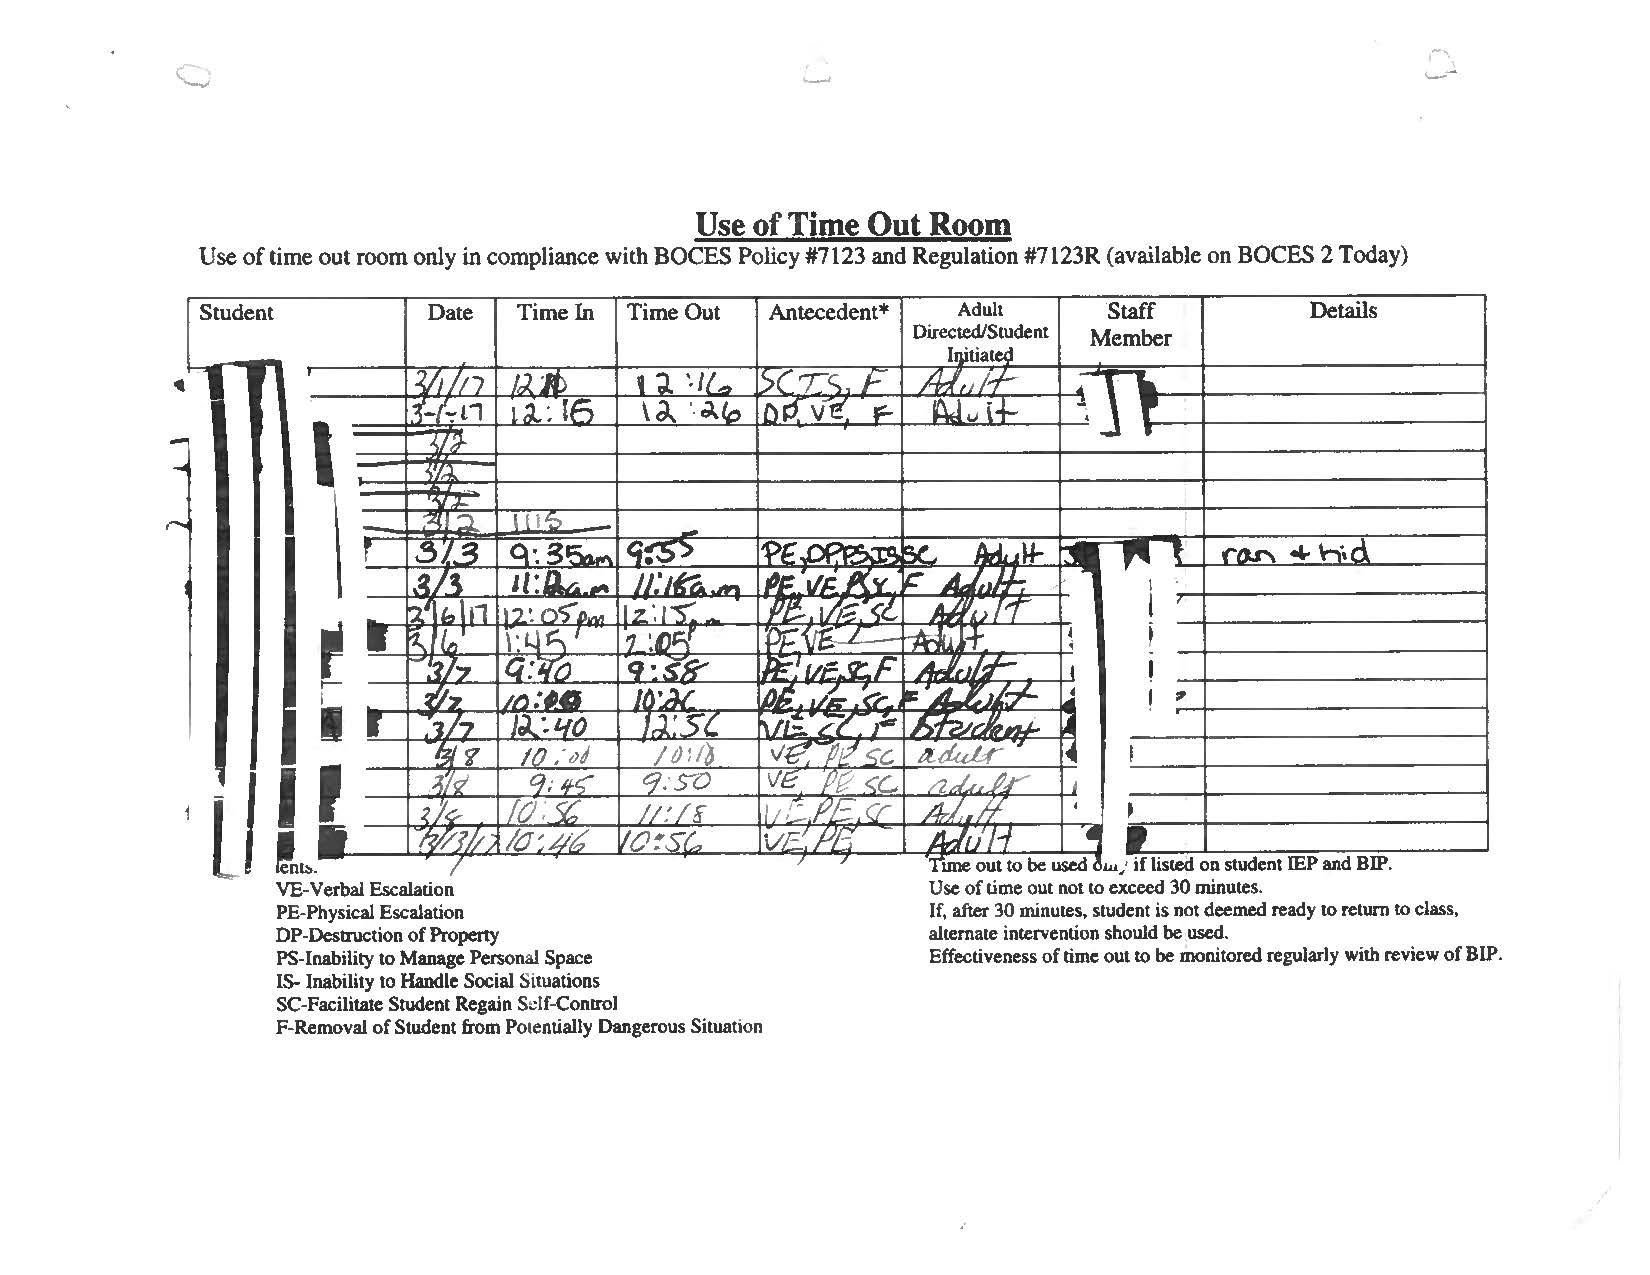 Use of Time Out Room
Use of time out room only in compliance with BOCES Policy #7123 and Regulation #7123R (available on BOCES 2 Today)
Student Date Time In Time Out Antecedent* Adult Directed/Student Initiated Staff Member Details
3/1/17 12:16 SC IS, F Adult
3-1-17 12:16 12:26 DP, VE, F Adult
3/2
3/2
3/2
3/2 1115
3/3 9:35am 9:55 PE, SC Adult ran + hid
3/3 11:16a.m PE, VE, F Adult
3/6/17 12:05pm 12:15pm PE, VE, SC Adult
3/6 1:45 2:05 PE VE Adult
3/7 9:40 9:58 PE, VE, SC, F Adult
3/7 10:26 PE, VE, SC, F Adult
3/7 12:40 12:56 VE, SC, F Student
3/8 10:18 VE, PE SC adult
3/8 9:45 9:50 VE, PE SC adult
3/8 10:56 11:18 VE, PE, SC Adult
10:46 10:56 VE, PE, Adult
VE-Verbal Escalation
PE-Physical Escalation
DP-Destruction of Property
PS-Inability to Manage Personal Space
IS- Inability to Handle Social Situations
SC-Facilitate Student Regain Self-Control
F-Removal of Student from Potentially Dangerous Situation
Time out to be used if listed on student IEP and BIP.
Use of time out not to exceed 30 minutes.
If, after 30 minutes, student is not deemed ready to return to class,
alternate intervention should be used.
Effectiveness of time out to be monitored regularly with review of BIP.